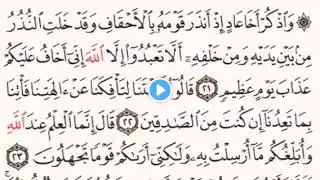 ۞ وَاذْكُرْ أَخَا عَادٍ إِذْ أَنذَرَ قَوْمَهُ بِالْأَحْقَافِ وَقَدْ خَلَتِ النُّذُرُ
مِن بَيْنِ يَدَيْهِ وَمِنْ خَلْفِهِ أَلَّا تَعْبُدُوا إِلَّا اللَّهَ إِنِّي أَخَافُ عَلَيْكُمْ
عَذَابَ يَوْمٍ عَظِيمٍ ٢١ قَالُوا أَجِئْتَنَا لِتَأْفِكَنَا عَنْ آلِهَتِنَا فَأْتِنَا
بِمَا تَعِدُنَا إِن كُنتَ مِنَ الصَّادِقِينَ ٢٢ قَالَ إِنَّمَا الْعِلْمُ عِندَ اللَّهِ
وَأُبَلِّغُكُم مَّا أُرْسِلْتُ بِهِ وَلَٰكِنِّي أَرَاكُمْ قَوْمًا تَجْهَلُونَ ٢٣